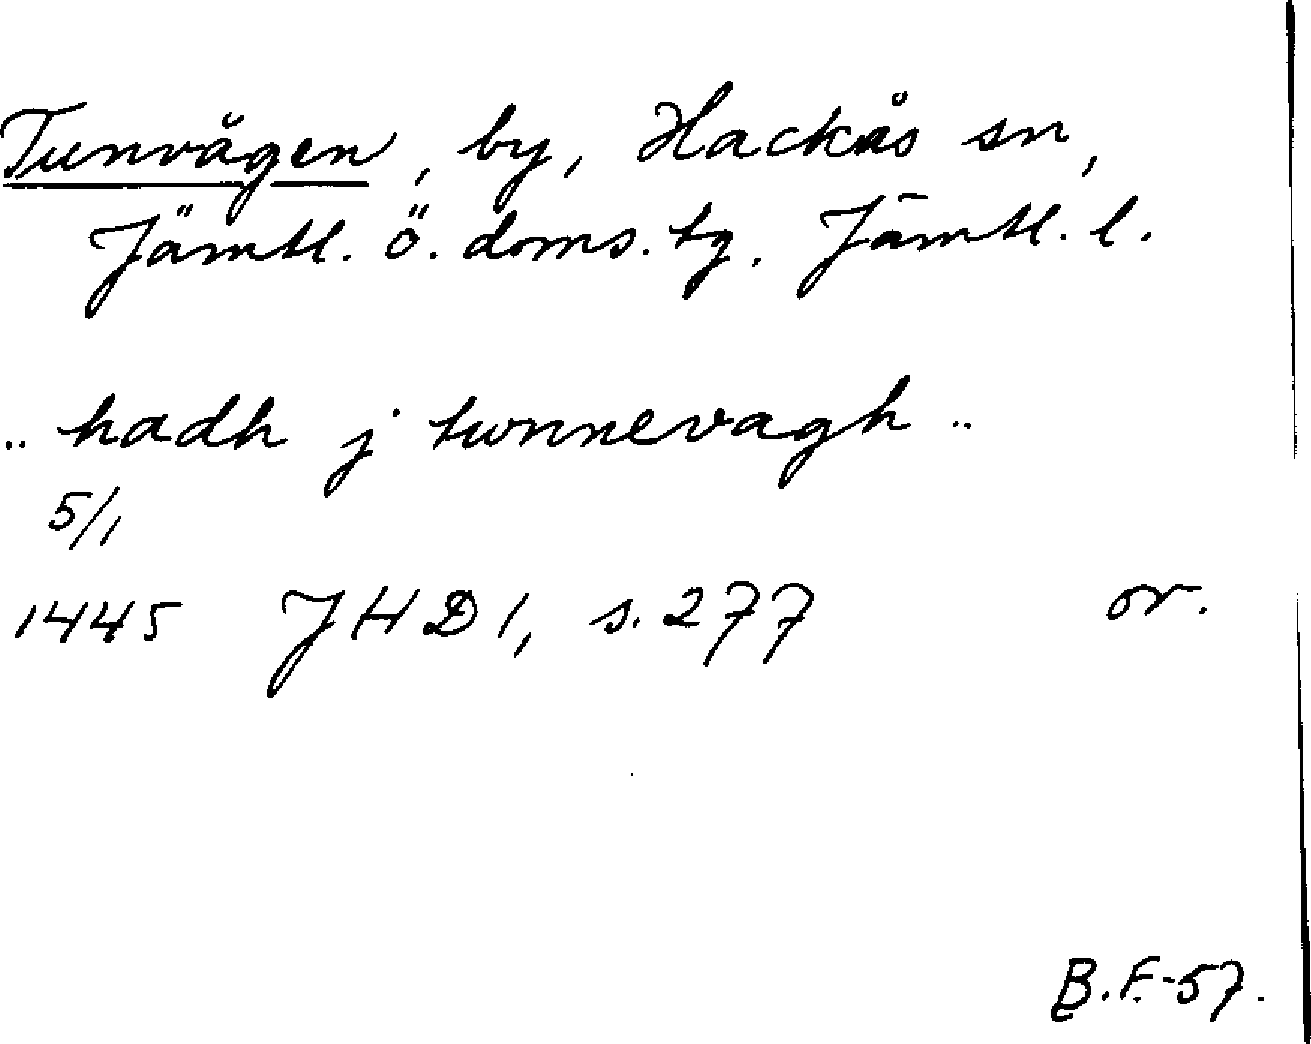 Tunvågen, by, Hackås sn,
Jämtl. ö. doms. tg. Jämtl. l.
.. hadh j tunnevagh ..
5/1
1445 JHD 1, s. 277 or.
B.F.-57.